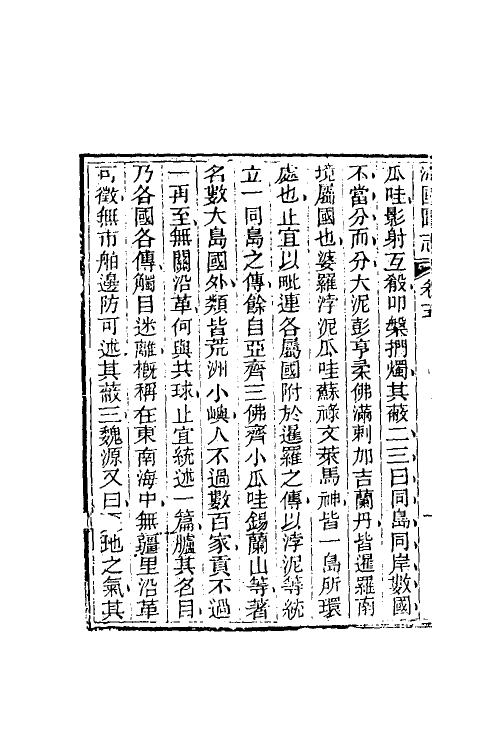 海國圖志 卷五
瓜哇影射互殽叩槃捫燭其蔽二三曰同島同岸數國
不當分而分大泥彭亨柔佛滿剌加吉蘭丹皆暹羅南
境屬國也婆羅浡泥瓜哇蘇祿文萊馬神皆一島所環
處也止宜以毗連各屬國附於暹羅之傳以浡泥等統
立一同島之傳餘自亞齊三佛齊小瓜哇錫蘭山等著
名數大島國外類皆荒洲小嶼人不過數百家貢不過
一再至無關沿革何與共球止宜統述一篇臚其名目
乃各國各傳觸目迷離概稱在東南海中無疆里沿革
可徵無市舶邊防可述其蔽三魏源又曰 地之氣其